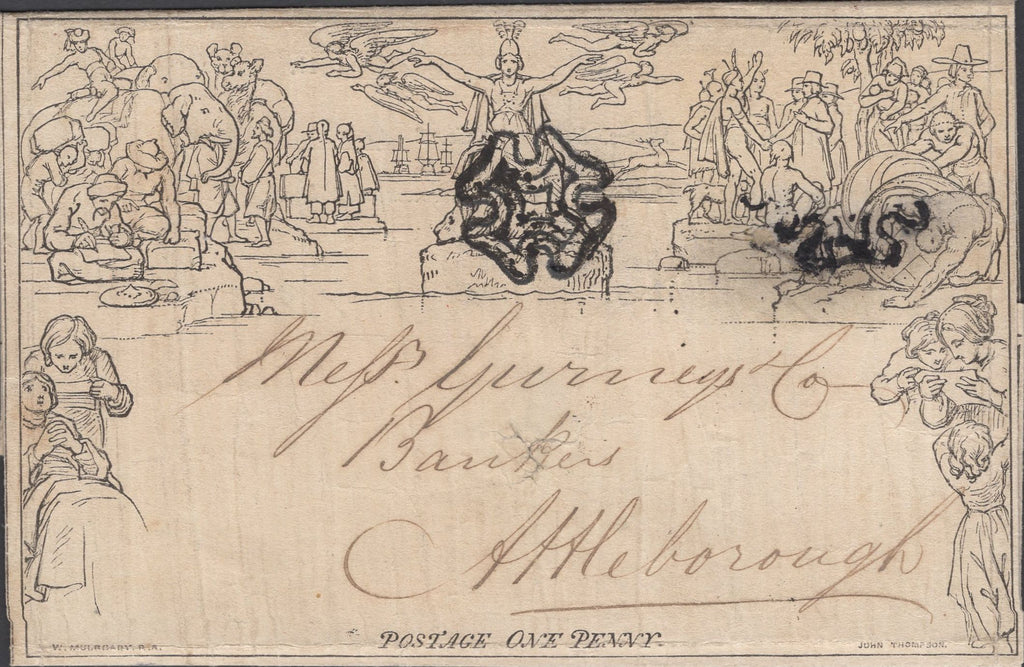 Messrs. Gurneys & Co
Bankers
Attleborough
POSTAGE ONE PENNY.
W. MULREADY. R.A.
JOHN THOMPSON.